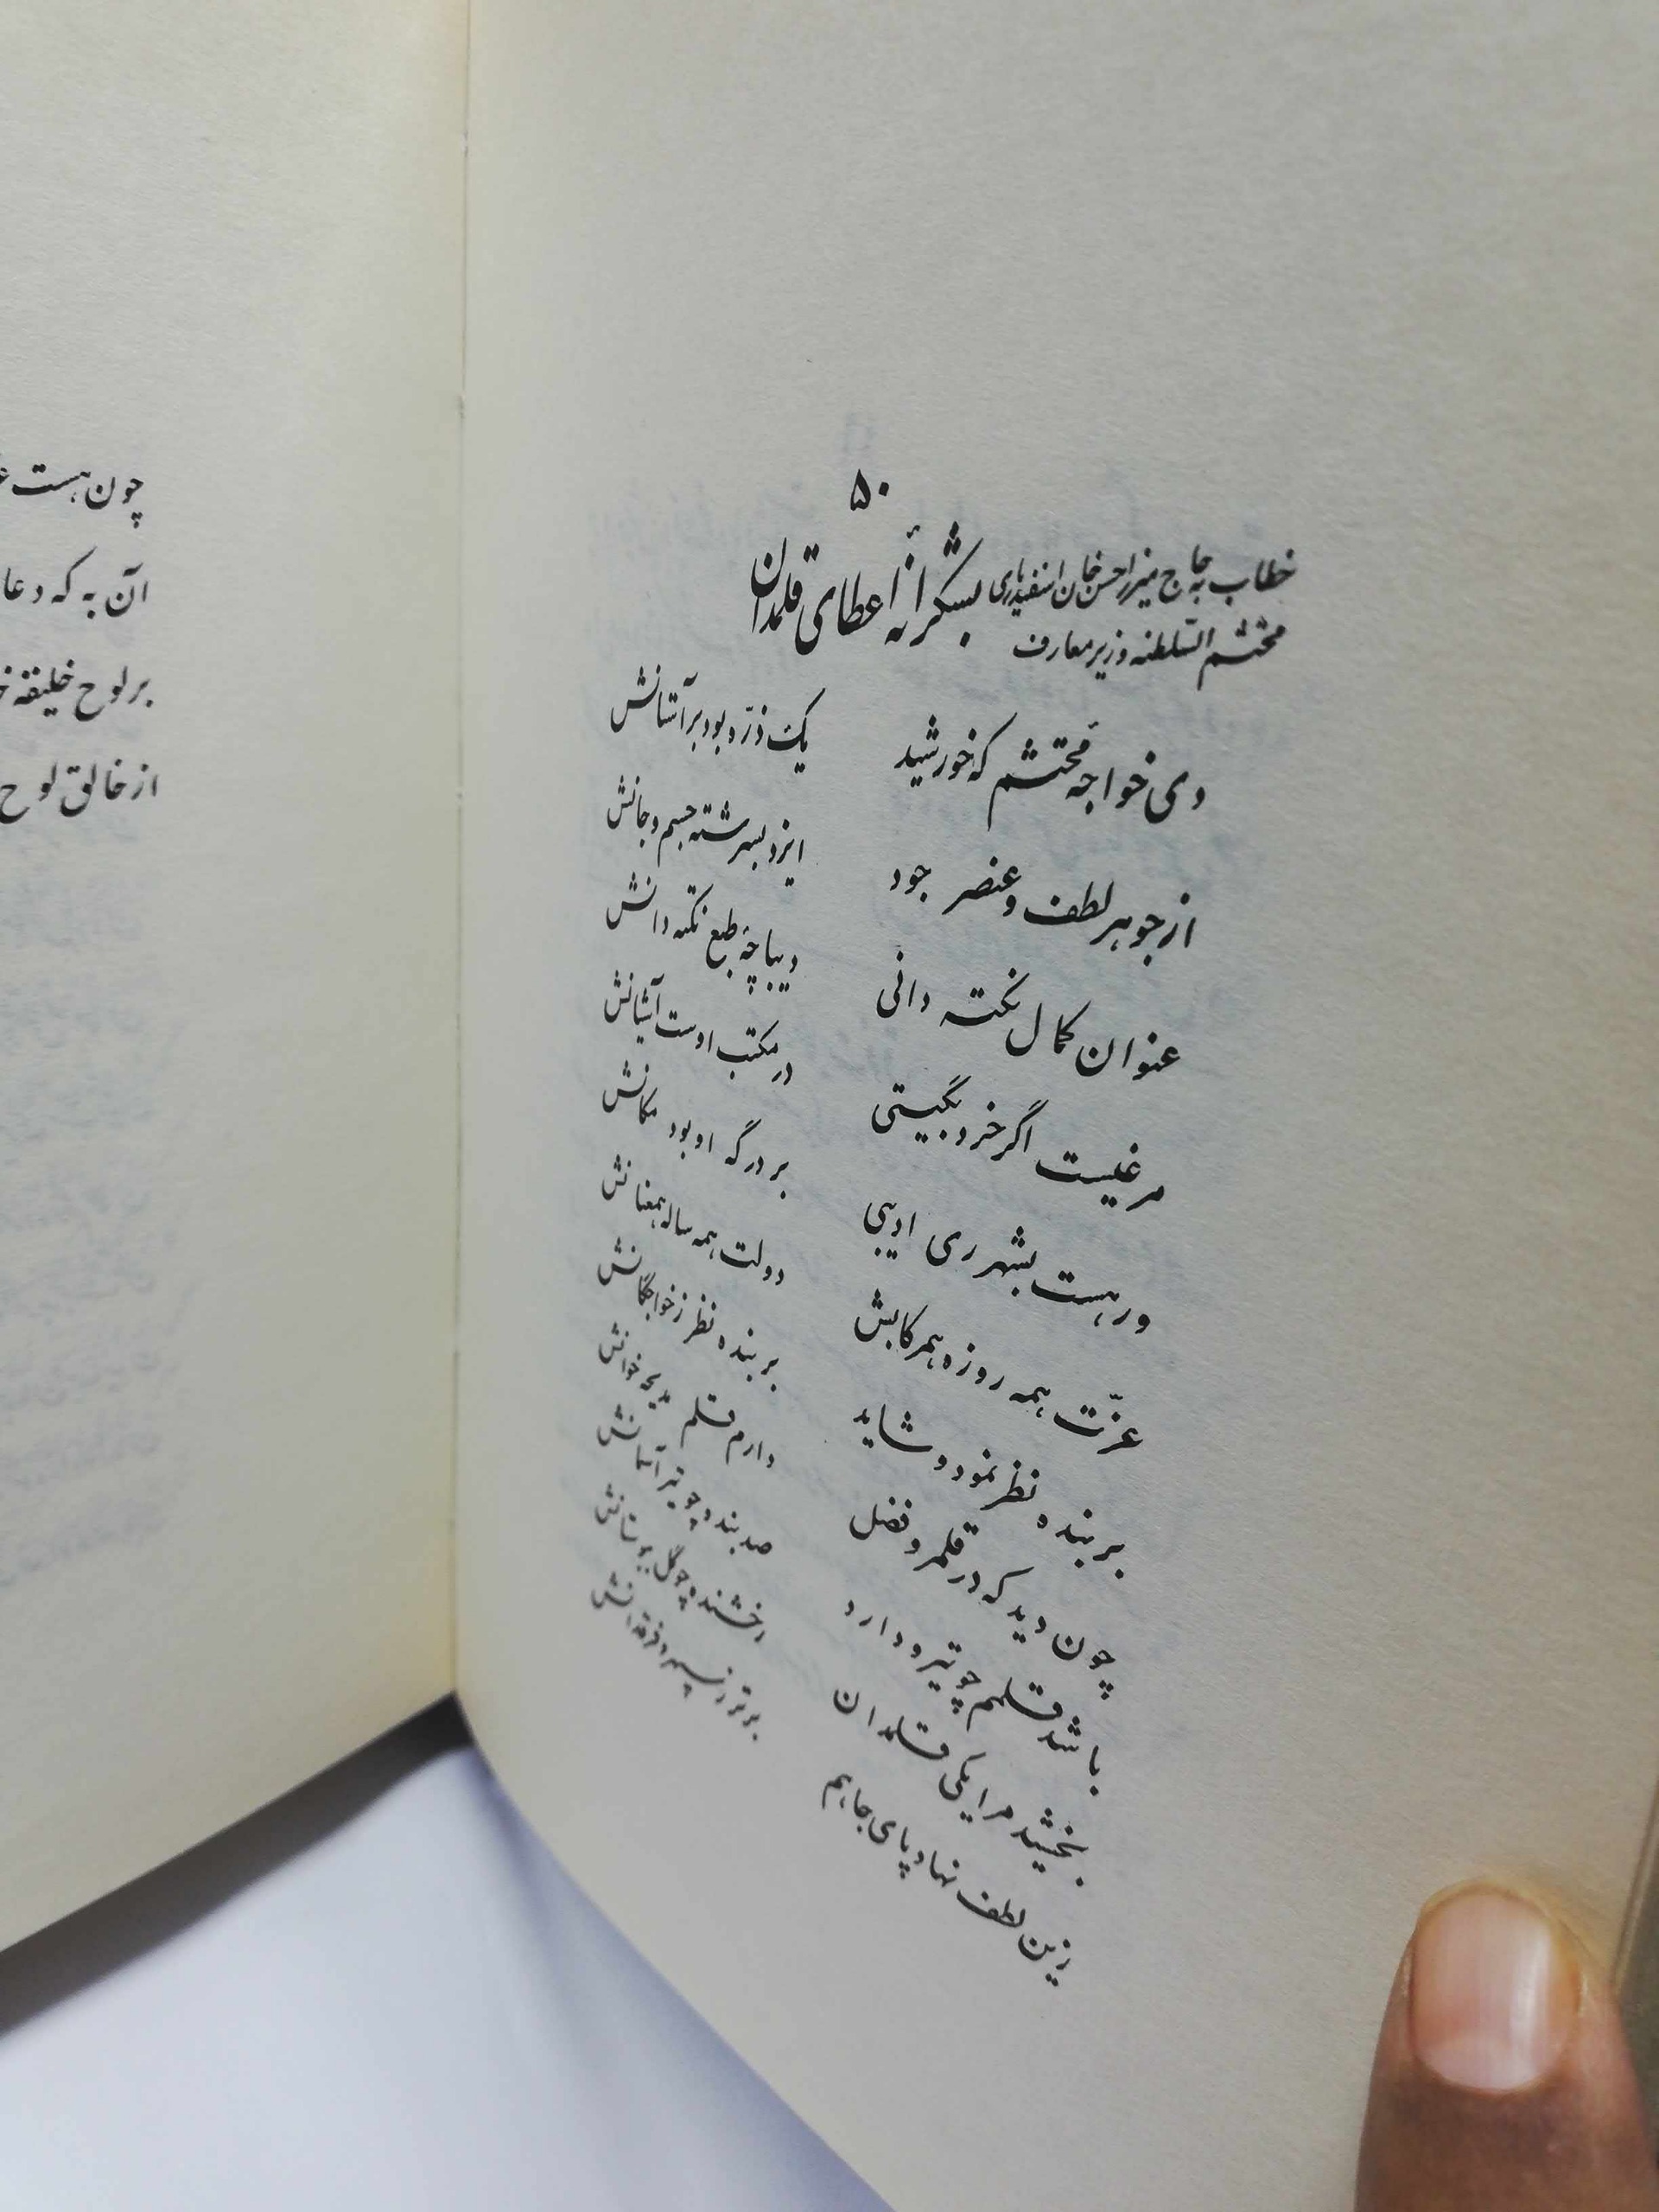 ۵۰
خطاب به حاج میرزا حسن خان اسفندیاری
محتشم السّلطنه وزیر معارف
بشکرانهٔ اعطای قلمدان
دی خواجه محتشم که خورشید
یک ذرّه بود بر آستانش
از جوهر لطف و عنصر جود
ایزد بسرشته جسم و جانش
عنوان کمال نکته دانی
دیباچهٔ طبع نکته دانش
مرغیست اگر خرد بگیتی
در مکتب اوست آشیانش
ور هست بشهر ری ادیبی
بر درگه او بود مکانش
عزّت همه روزه همرکابش
دولت همه ساله همعنانش
بر بنده نظر نمود و شاید
بر بنده نظر ز خواجگانش
چون دید که در قلمرو فضل
دارم قلم مدیحه خوانش
باشد قلمم چو تیر و دارد
صد بنده چو تیر آسمانش
بخشید مرا یکی قلمدان
رخشنده چو گل ببوستانش
زین لطف نهاد پای جاهم
برتر ز سپهر و فرقدانش
چون هست
آن به که دعا
بر لوح خلیقه
از خالق لوح